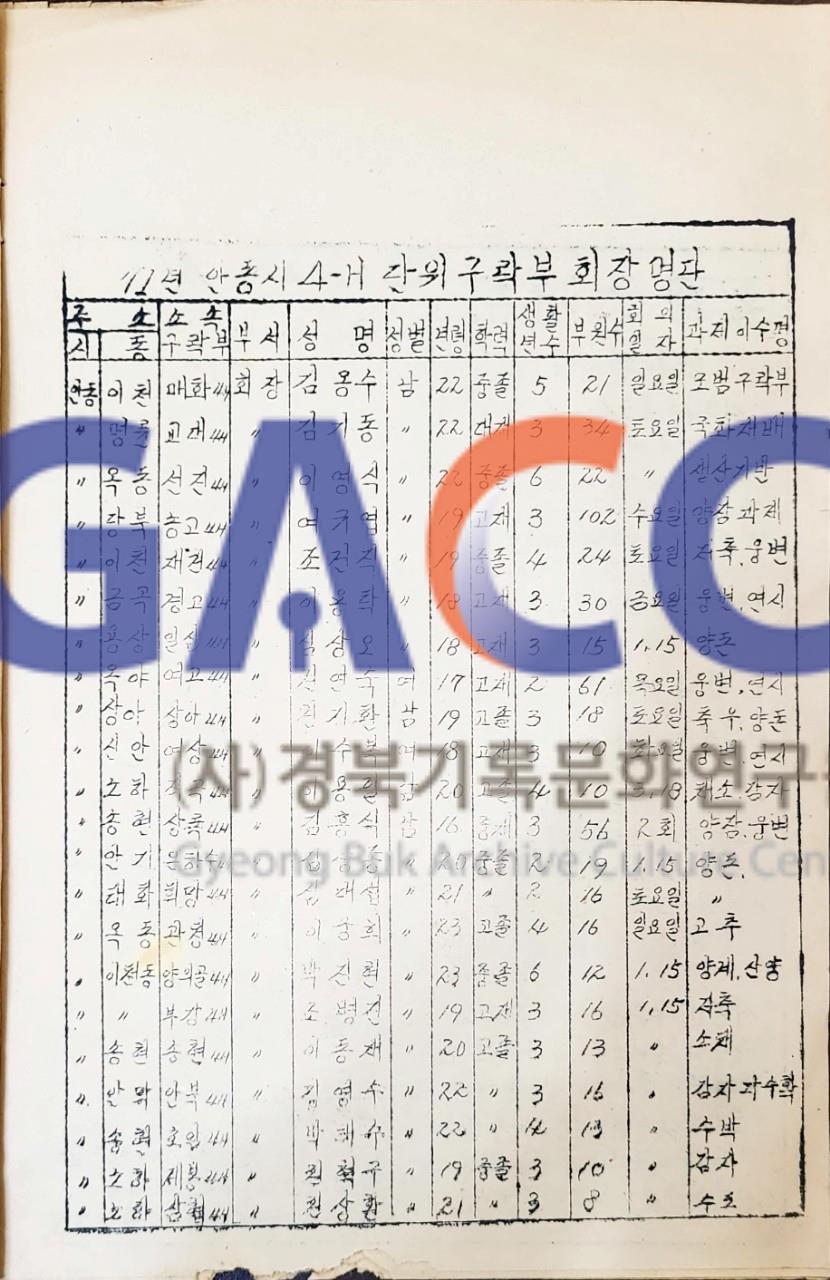 년 안동시 4-H 단위구락부회장명단
주소 소속 생활 회의
시 동 구락부 부서 성명 성별 년령 학력 년수 부원수 일자 과제이수명
안동 이천 매화4H 회장 김용수 남 22 중졸 5 21 일요일 모범구락부
〃 교대4H 〃 김기동 〃 22 대재 3 34 토요일 국화재배
〃 옥동 선진4H 〃 이영식 〃 22 중졸 6 22 〃 생산기반
〃 당북 농고4H 〃 여규업 〃 19 고재 3 102 수요일 양잠과제
〃 이천 재건4H 〃 조진직 〃 19 중졸 4 24 토요일 저축.웅변
〃 금곡 경고4H 〃 이용탁 〃 18 고재 3 30 금요일 웅변.연시
〃 용상 일심4H 〃 상오 〃 18 고재 3 15 1.15 양돈
〃 옥야 여고4H 〃 연숙 여 17 고재 2 61 목요일 웅변.연시
〃 상아 상아4H 〃 기환 남 19 고졸 3 18 토요일 축우.양돈
〃 신안 여상4H 〃 이수복 여 18 고재 3 10 화요일 웅변.연시
〃 노하 4H 〃 이용필 남 20 고졸 4 10 3.18 채소.감자
〃 송현 상록4H 〃 김홍식 남 16 중재 3 56 2회 양잠.웅변
〃 안기 은하수4H 〃 20 중졸 2 19 1.15 양돈.
〃 태화 희망4H 〃 김대섭 〃 21 〃 2 16 토요일 〃
〃 옥동 관청4H 〃 이중희 〃 23 고졸 4 16 일요일 고추
〃 이천동 양의골4H 〃 박진현 〃 23 중졸 6 12 1.15 양계.산양
〃 〃 부강4H 〃 조병진 〃 19 고재 3 16 1.15 저축
〃 송현 송현4H 〃 이동재 〃 20 고졸 3 13 〃 소채
〃 안막 안북4H 〃 김영수 〃 22 〃 3 16 〃 감자다수확
〃 송현 호암4H 〃 박태수 〃 22 〃 4 13 〃 수박
〃 노하 제봉4H 〃 권혁구 〃 19 중졸 3 10 〃 감자
〃 노하 4H 〃 권상환 〃 21 〃 3 8 〃 수도
GACC
(사)경북기록문화연구
Gyeong Buk Archive Culture Cen